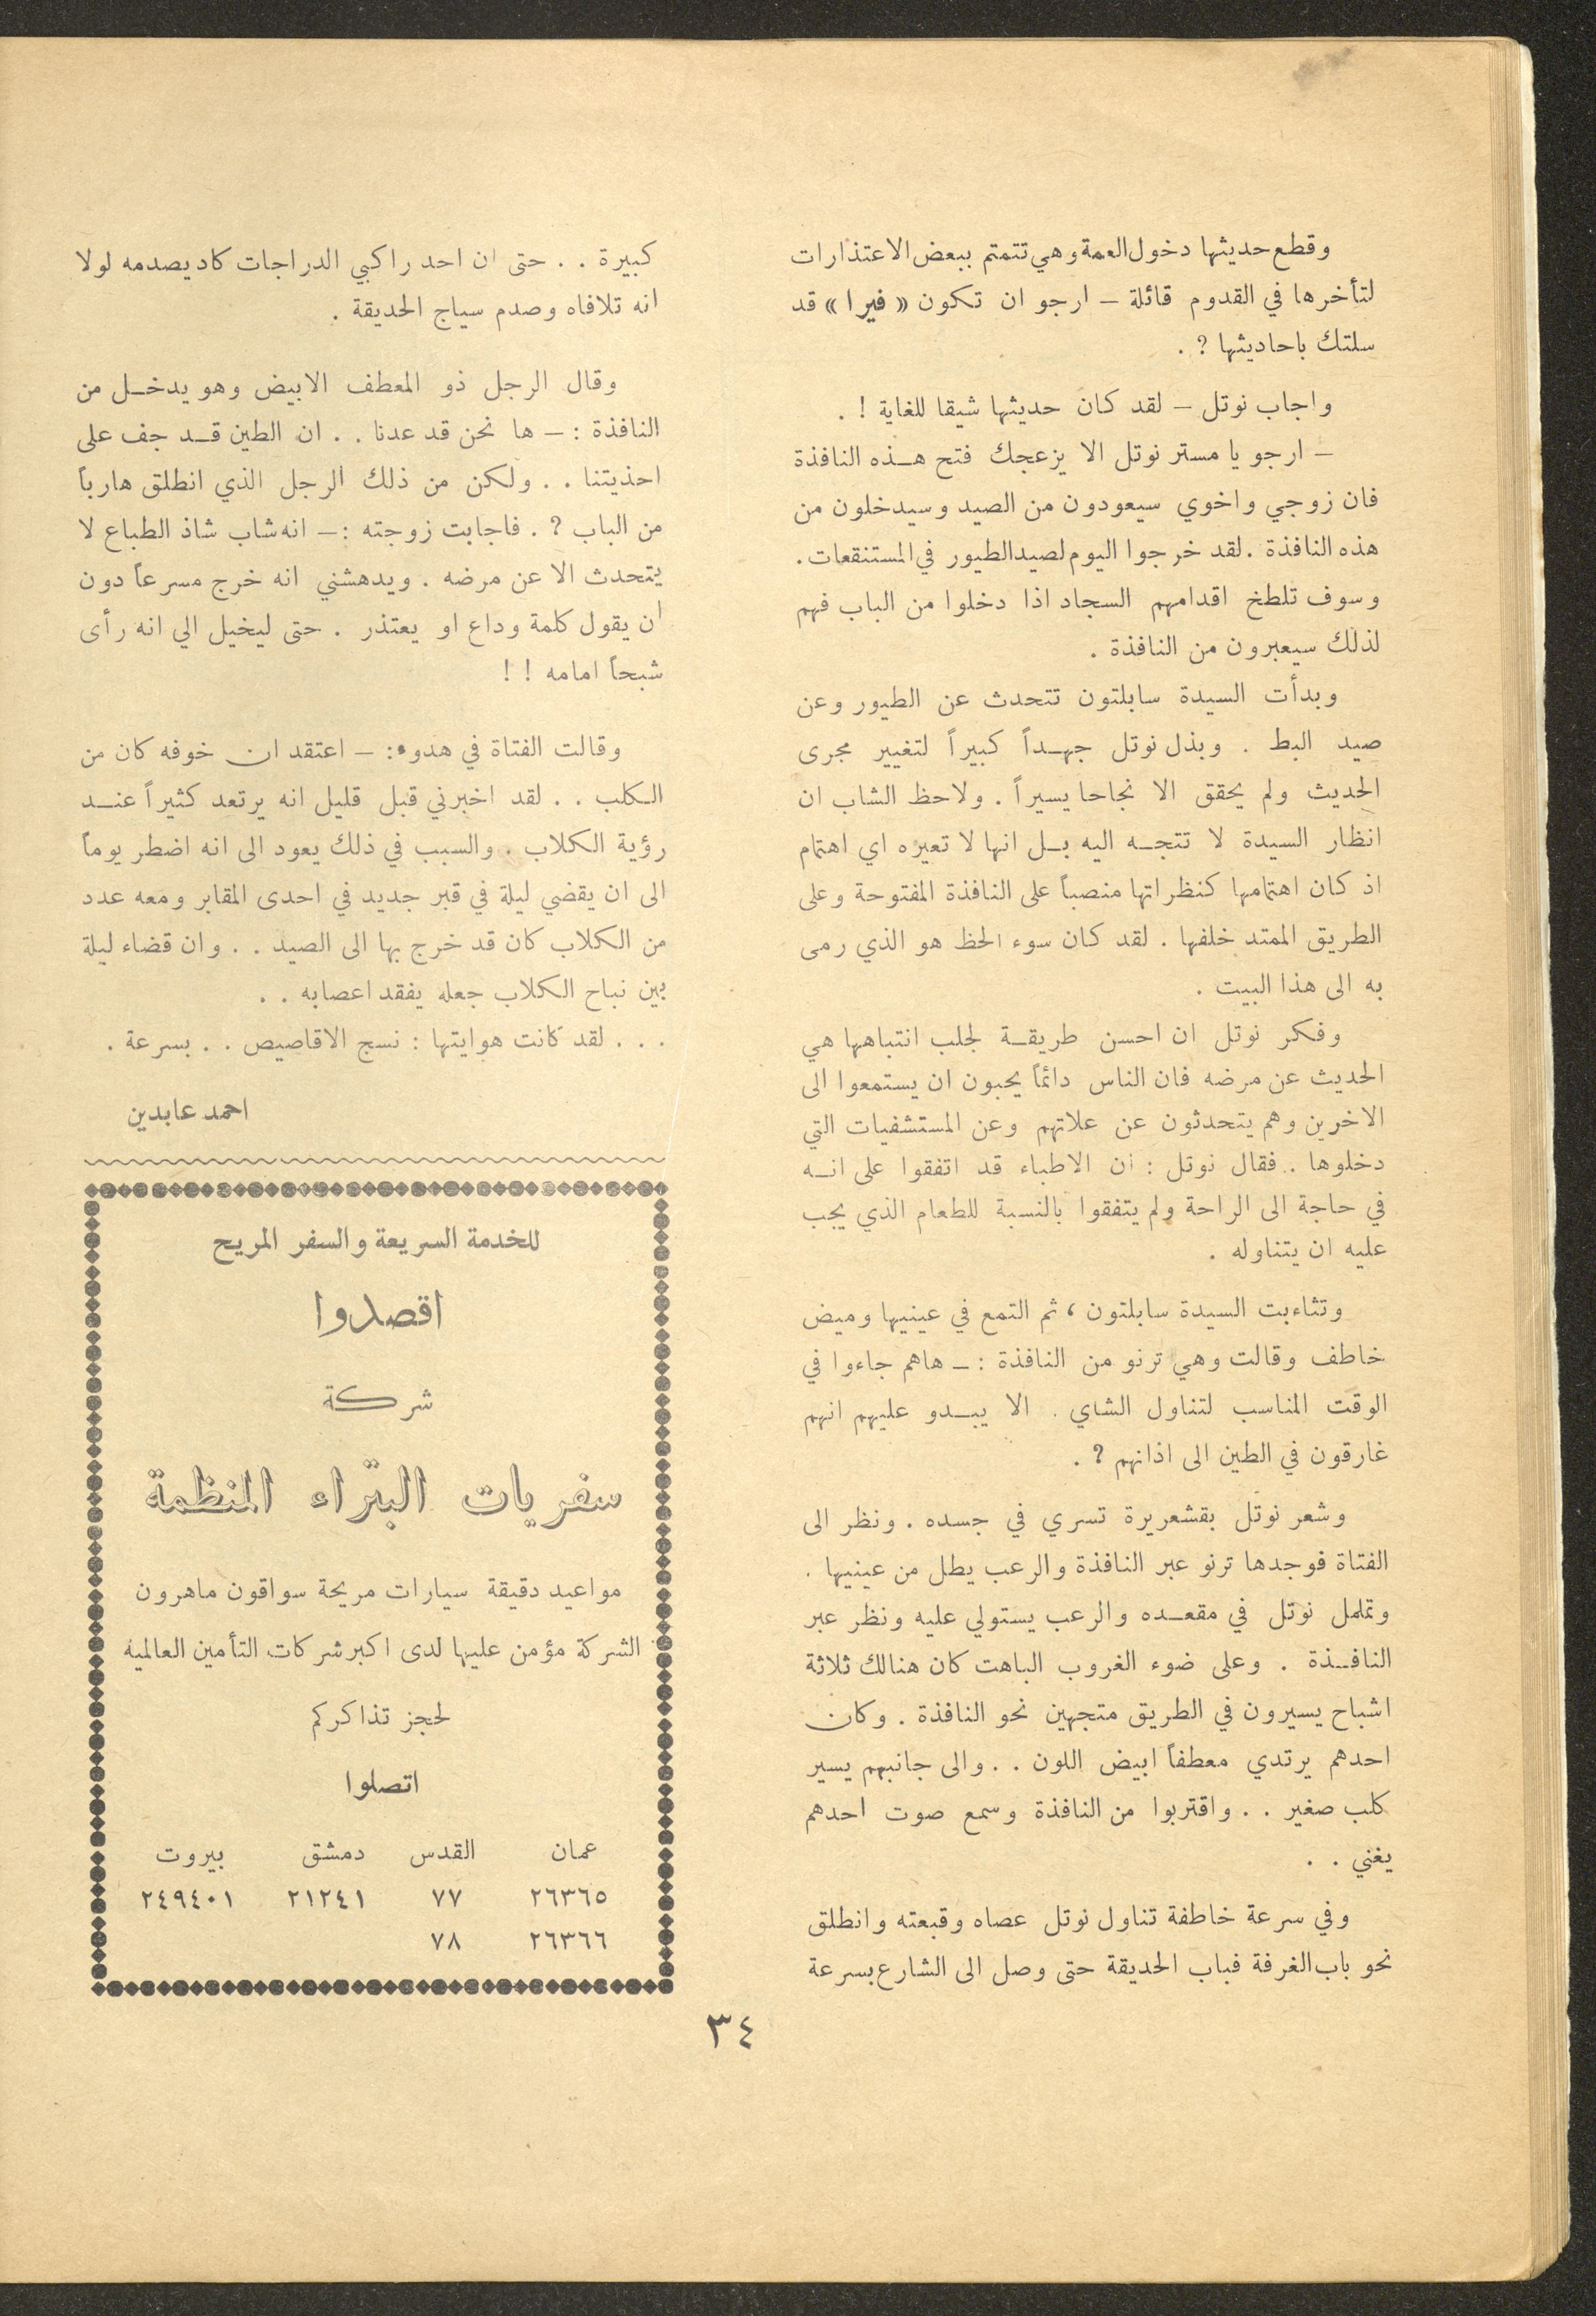 وقطع حديثها دخول العمة وهي تتمتم ببعض الاعتذارات
لتأخرها في القدوم قائلة – ارجو ان تكون « فيرا » قد
سلتك باحاديثها ? .
واجاب نوتل – لقد كان حديثها شيقا للغاية ! .
– ارجو يا مستر نوتل الا يزعجك فتح هـذه النافذة
فان زوجي واخوي سيعودون من الصيد وسيدخلون من
هذه النافذة . لقد خرجوا اليوم لصيد الطيور في المستنقعات .
وسوف تلطخ اقدامهم السجاد اذا دخلوا من الباب فهم
لذلك سيعبرون من النافذة .
وبدأت السيدة سابلتون تتحدث عن الطيور وعن
صيد البط . وبذل نوتل جهـداً كبيراً لتغيير مجرى
الحديث ولم يحقق الا نجاحا يسيراً . ولاحظ الشاب ان
انظار السيدة لا تتجـه اليه بـل انها لا تعيره اي اهتمام
اذ كان اهتمامها كنظراتها منصباً على النافذة المفتوحة وعلى
الطريق الممتد خلفها . لقد كان سوء الحظ هو الذي رمى
به الى هذا البيت .
وفكر نوتل ان احسن طريقـة لجلب انتباهها هي
الحديث عن مرضه فان الناس دائماً يحبون ان يستمعوا الى
الاخرين وهم يتحدثون عن علاتهم وعن المستشفيات التي
دخلوها . . فقال نوتل : ان الاطباء قد اتفقوا على انـه
في حاجة الى الراحة ولم يتفقوا بالنسبة للطعام الذي يجب
عليه ان يتناوله .
وتثاءبت السيدة سابلتون ، ثم التمع في عينيها وميض
خاطف وقالت وهي ترنو من النافذة : – هاهم جاءوا في
الوقت المناسب لتناول الشاي . الا يبـدو عليهم انهم
غارقون في الطين الى اذانهم ? .
وشعر نوتل بقشعريرة تسري في جسده . ونظر الى
الفتاة فوجدها ترنو عبر النافذة والرعب يطل من عينيها .
وتململ نوتل في مقعـده والرعب يستولي عليه ونظر عبر
النافـذة . وعلى ضوء الغروب الباهت كان هنالك ثلاثة
اشباح يسيرون في الطريق متجهين نحو النافذة . وكان
احدهم يرتدي معطفاً ابيض اللون . . والى جانبهم يسير
كلب صغير . . واقتربوا من النافذة وسمع صوت احدهم
يغني . .
وفي سرعة خاطفة تناول نوتل عصاه وقبعته وانطلق
نحو باب الغرفة فباب الحديقة حتى وصل الى الشارع بسرعة
كبيرة . . حتى ان احد راكبي الدراجات كاد يصدمه لولا
انه تلافاه وصدم سياج الحديقة .
وقال الرجل ذو المعطف الابيض وهو يدخـل من
النافذة : – ها نحن قد عدنا . . ان الطين قـد جف على
احذيتنا . . ولكن من ذلك الرجل الذي انطلق هارباً
من الباب ? . فاجابت زوجته : – انه شاب شاذ الطباع لا
يتحدث الا عن مرضه . ويدهشني انه خرج مسرعاً دون
ان يقول كلمة وداع او يعتذر . حتى ليخيل الي انه رأى
شبحاً امامه ! !
وقالت الفتاة في هدوء : – اعتقد ان خوفه كان من
الكلب . . لقد اخبرني قبل قليل انه يرتعد كثيراً عنـد
رؤية الكلاب . والسبب في ذلك يعود الى انه اضطر يوماً
الى ان يقضي ليلة في قبر جديد في احدى المقابر ومعه عدد
من الكلاب كان قد خرج بها الى الصيد . . وان قضاء ليلة
بين نباح الكلاب جعله يفقد اعصابه . .
. . . لقد كانت هوايتها : نسج الاقاصيص . . بسرعة .
احمد عابدين
للخدمة السريعة والسفر المريح
اقصدوا
شركة
سفريات البتراء المنظمة
مواعيد دقيقة سيارات مريحة سواقون ماهرون
الشركة مؤمن عليها لدى اكبر شركات التأمين العالميه
لحجز تذاكركم
اتصلوا
عمان القدس دمشق بيروت
٢٦٣٦٥ ٧٧ ٢١٢٤١ ٢٤٩٤٠١
٢٦٣٦٦ ٧٨
٣٤